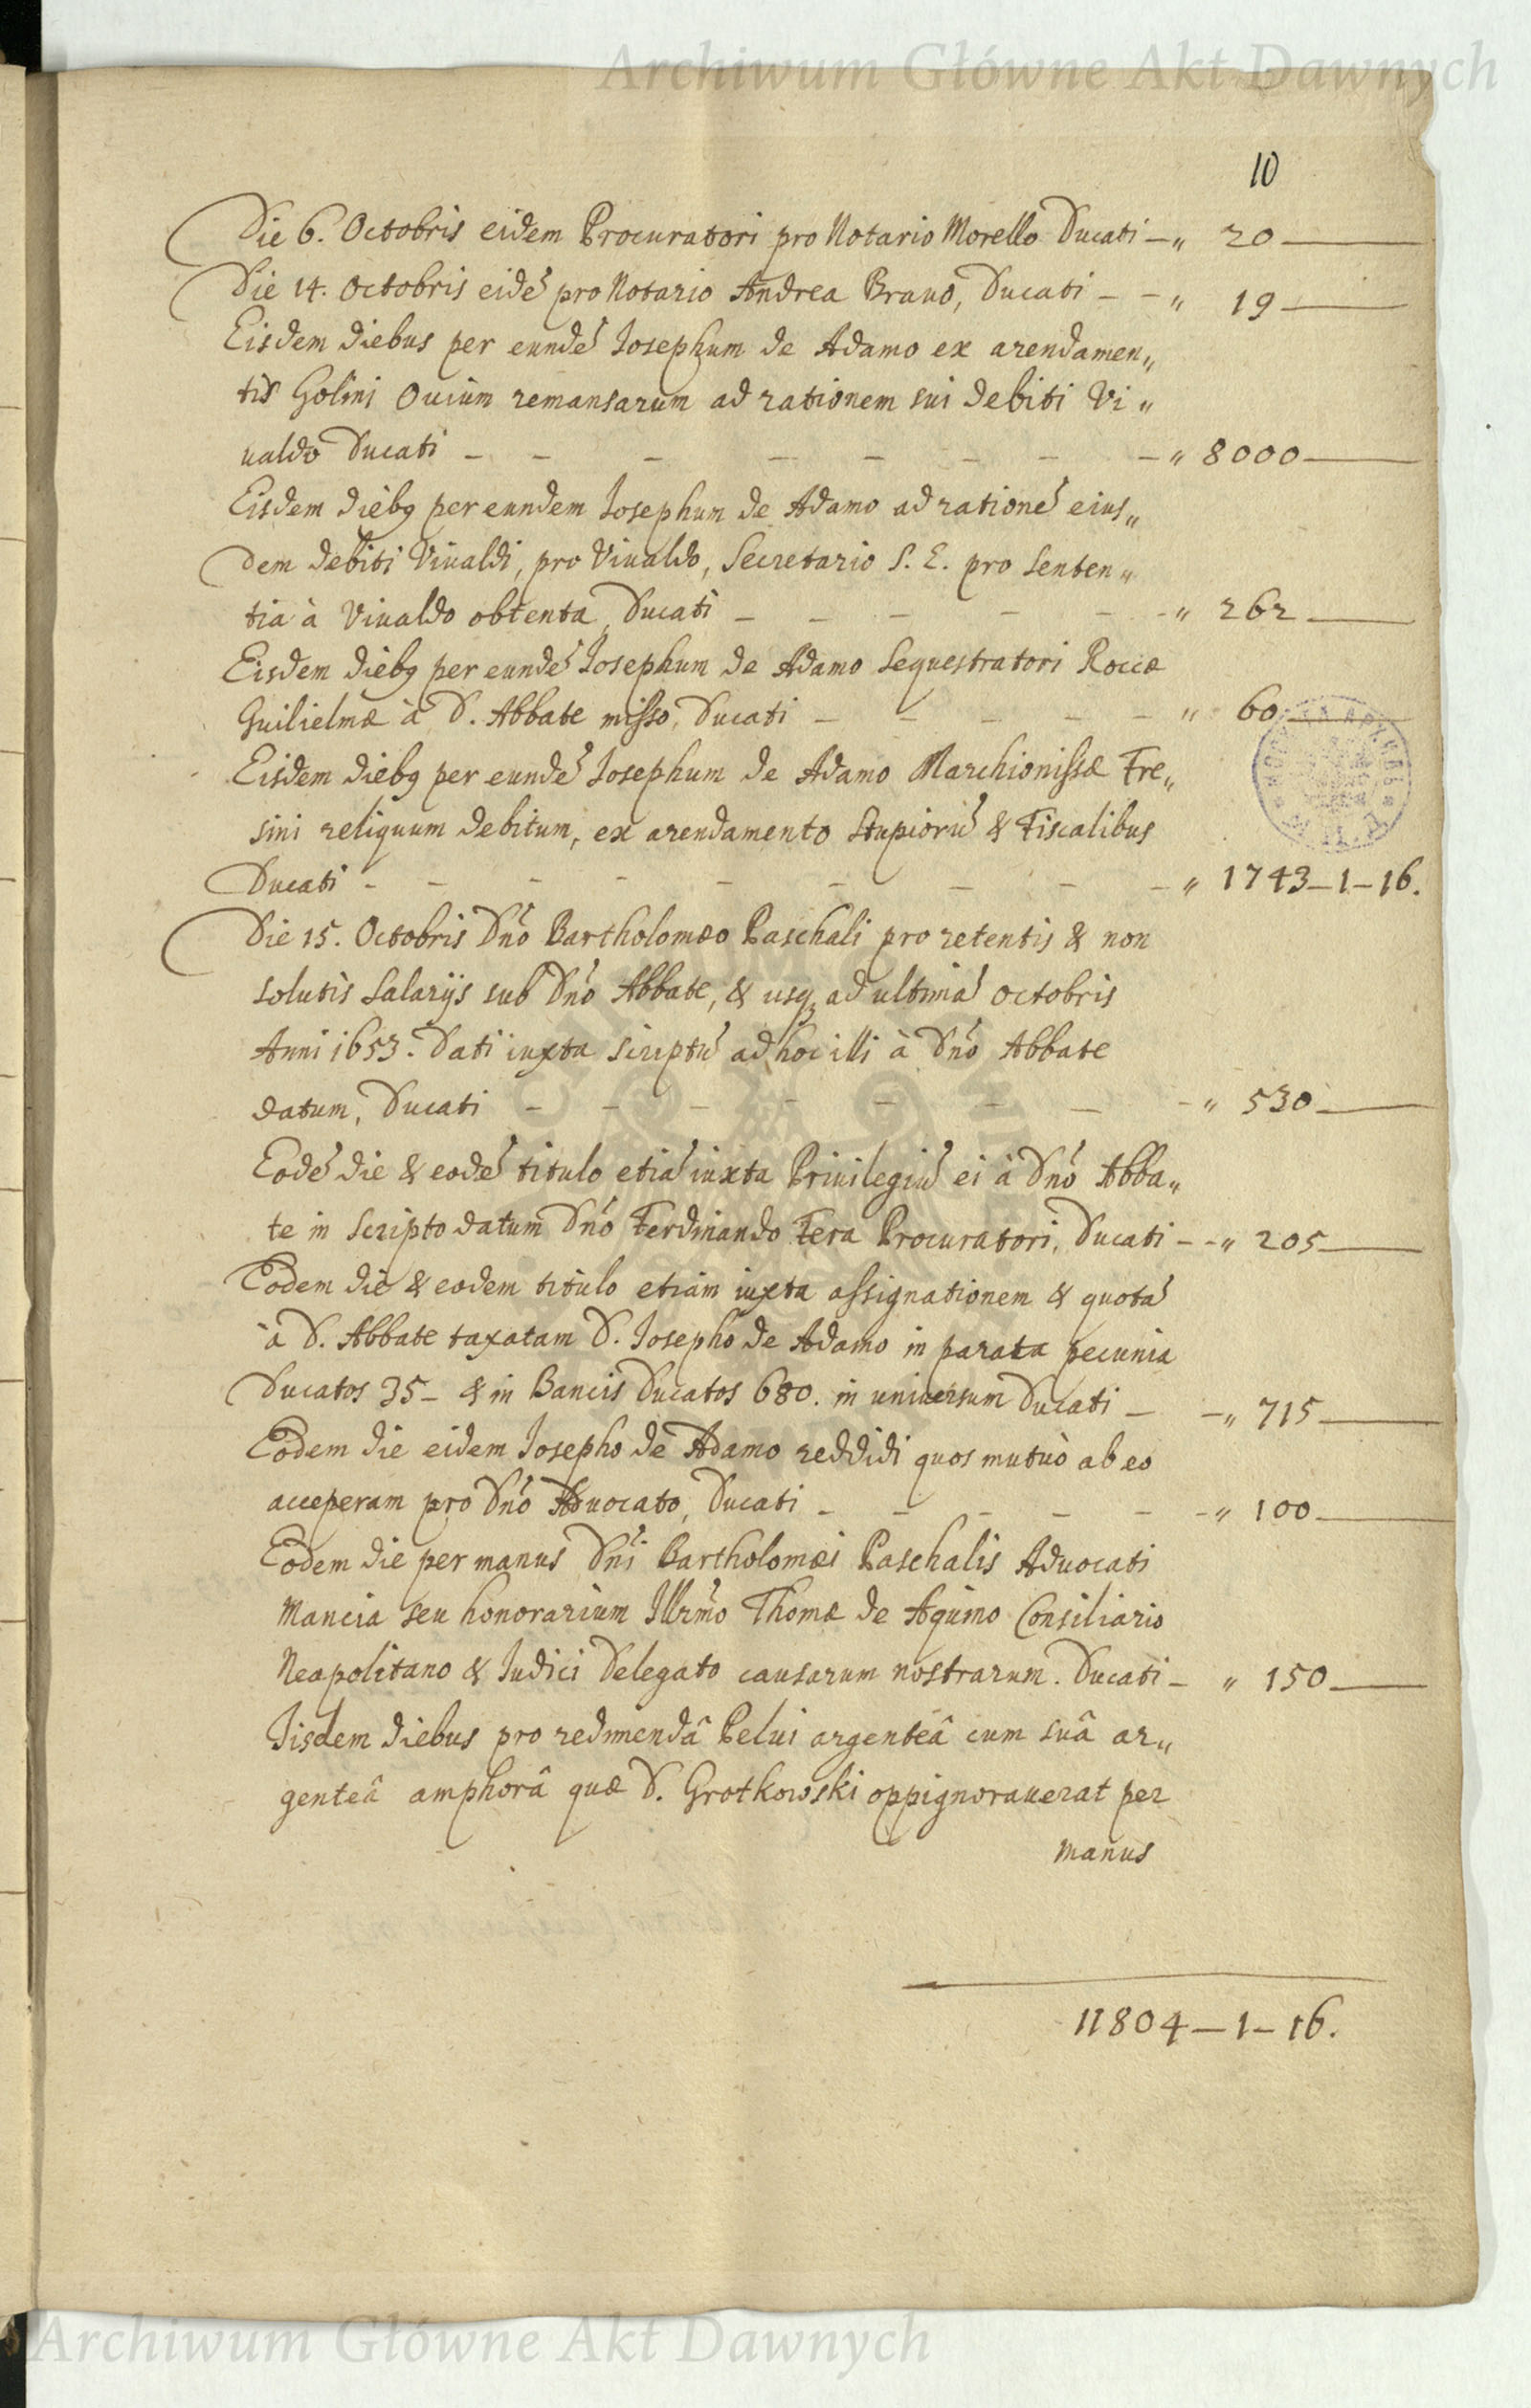 Archiwum Główne Akt Dawnych
10
Die 6. Octobris eidem Procuratori pro Notario Morello Ducati — „ 20 —
Die 14. Octobris eide᷃ pro Notario Andrea Brauo, Ducati — — „ 19 —
Eisdem diebus per eunde᷃ Josephum de Adamo ex arendamen„
tis Golini Ouium remansarum ad rationem sui debiti Vi„
ualdo Ducati — — — — — — — — „ 8000 —
Eisdem dieb9 per eundem Josephum de Adamo ad ratione᷃ eius„
dem debiti Viualdi, pro Viualdo, Secretario S. E. pro senten„
tia à Viualdo obtenta, Ducati — — — — — — „ 262 —
Eisdem dieb9 per eunde᷃ Josephum de Adamo Sequestratori Roccæ
Guilielmæ à D. Abbate misso, Ducati — — — — — „ 60 —
Eisdem dieb9 per eunde᷃ Josephum de Adamo Marchionissæ Fre„
sini reliquum debitum, ex arendamento Stupioru᷃ & Fiscalibus
Ducati — — — — — — — — — „ 1743—1—16.
Die 15. Octobris Dn᷃o Bartholomæo Paschali pro retentis & non
solutis salarijs sub Dn᷃o Abbate, & usq3 ad ultima᷃ octobris
Anni 1653. Dati iuxta scriptu᷃ ad hoc illi à Dn᷃o Abbate
datum, Ducati — — — — — — — — „ 530 —
Eode᷃ die & eode᷃ titulo etia᷃ iuxta Priuilegiu᷃ ei à Dn᷃o Abba„
te in scripto datum Dn᷃o Ferdinando Fera Procuratori, Ducati — — „ 205 —
Eodem die & eodem titulo etiam iuxta assignationem & quota᷃
à D. Abbate taxatam D. Josepho de Adamo in parata pecunia
Ducatos 35 — & in Bancis Ducatos 680. in uniuersum Ducati — — „ 715 —
Eodem die eidem Josepho de Adamo reddidi quos mutuò ab eo
acceperam pro Dn᷃o Aduocato, Ducati — — — — — — „ 100 —
Eodem die per manus Dn᷃i Bartholomæi Paschalis Aduocati
Mancia seu honorarium Illrm᷃o Thomæ de Aquino Consiliario
Neapolitano & Iudici Delegato causarum nostrarum. Ducati — „ 150 —
Iisdem diebus pro redimendâ Pelui argenteâ cum suâ ar„
genteâ amphorâ quæ D. Grotkowski oppignorauerat per
manus
11804—1—16.
Archiwum Główne Akt Dawnych